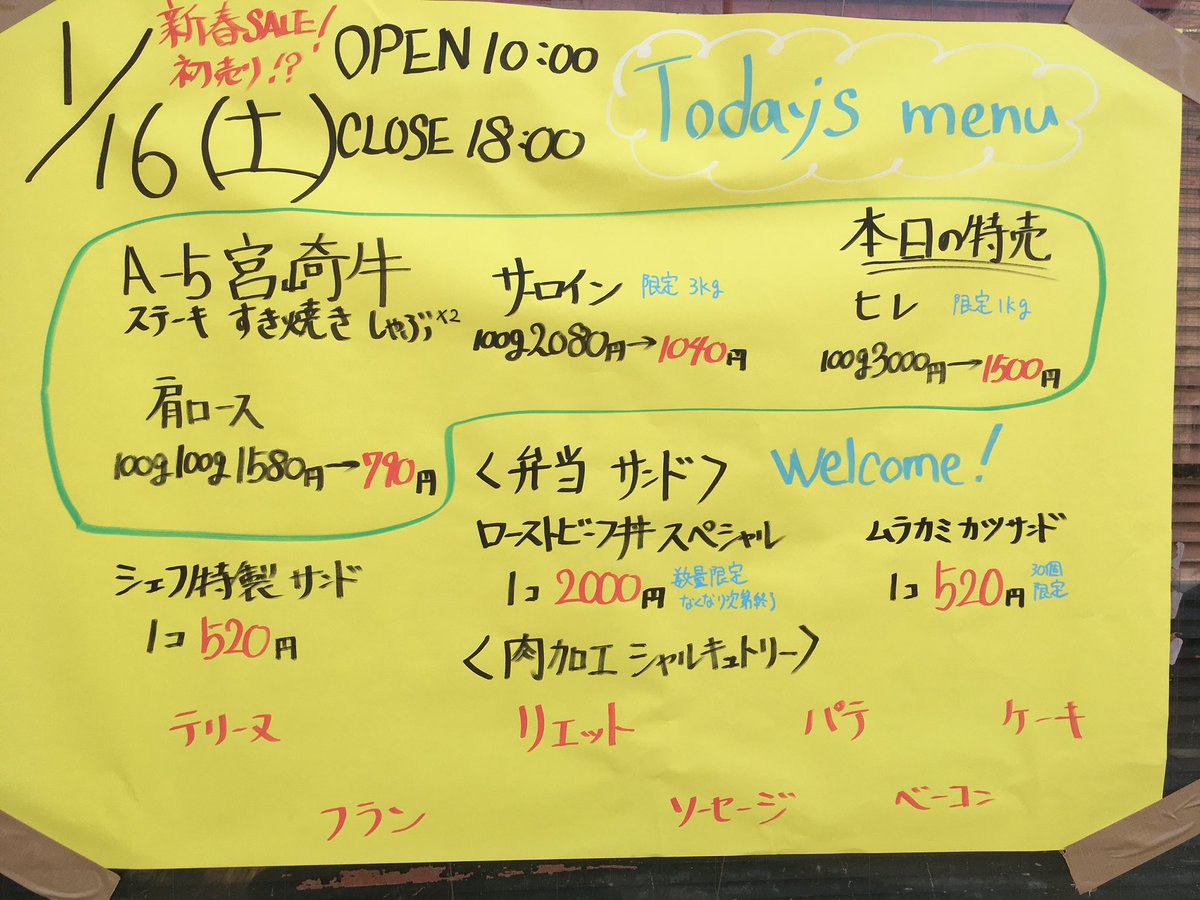 1/16(土)
新春SALE!
初売り!?
OPEN 10:00
CLOSE 18:00
Today's menu
A-5宮崎牛
ステーキ すき焼き しゃぶ×2
サーロイン 限定3kg
100g2080円→1040円
本日の特売
ヒレ 限定1kg
100g3000円→1500円
肩ロース
100g100g1580円→790円
<弁当 サンド>
Welcome!
シェフ特製 サンド
1コ 520円
ローストビーフ丼スペシャル
1コ 2000円 数量限定
なくなり次第終了
ムラカミカツサンド
1コ 520円 30個
限定
<肉加工 シャルキュトリー>
テリーヌ リエット パテ ケーキ
フラン ソーセージ ベーコン